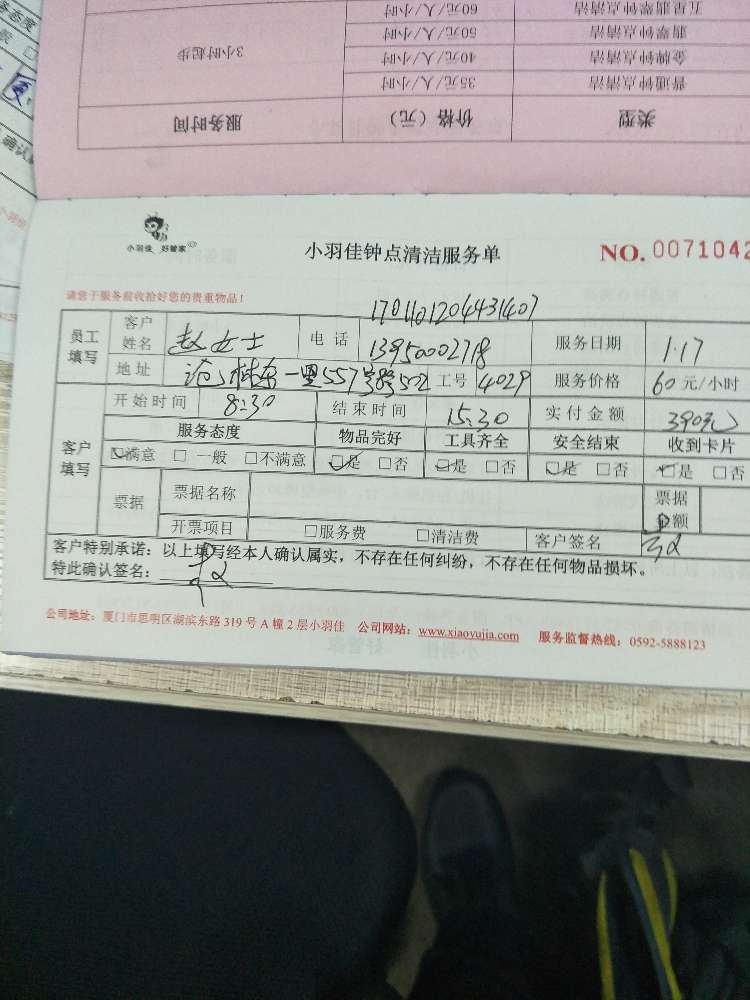 五星翡翠钟点清洁 60元/人/小时
翡翠钟点清洁 50元/人/小时
金牌钟点清洁 40元/人/小时 3小时起步
普通钟点清洁 35元/人/小时
类型 价格（元） 服务时间
小羽佳 好管家
小羽佳钟点清洁服务单 NO. 0071042
请您于服务前收拾好您的贵重物品！
1701101204431407
员工填写 客户姓名 赵女士 电话 13950002718 服务日期 1.17
地址 一里557号 502 工号 4029 服务价格 60元/小时
客户填写 开始时间 8:30 结束时间 15:30 实付金额 390元
服务态度 物品完好 工具齐全 安全结束 收到卡片
☑满意 □一般 □不满意 ☑是 □否 ☑是 □否 ☑是 □否 ☑是 □否
票据 票据名称 票据金额
开票项目 □服务费 □清洁费 客户签名
客户特别承诺：以上填写经本人确认属实，不存在任何纠纷，不存在任何物品损坏。
特此确认签名：
公司地址：厦门市思明区湖滨东路319号A幢2层小羽佳 公司网站：www.xiaoyujia.com 服务监督热线：0592-5888123